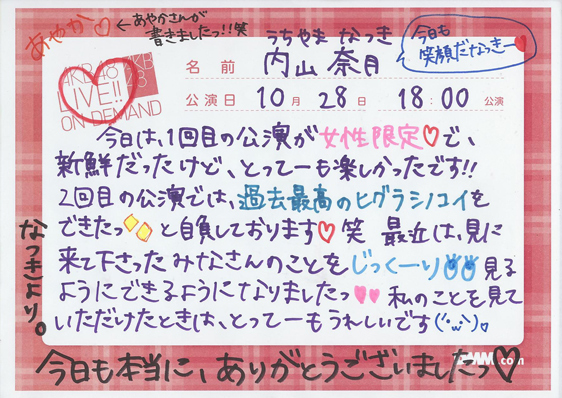 あやか♡ ←あやかさんが
書きましたっ!!笑
うちやま なつき
今日も
笑顔だなっきー♡
AKB48
LIVE!!
ON DEMAND
名前 内山 奈月
公演日 10月 28日 18:00 公演
今日は、1回目の公演が女性限定♡で、
新鮮だったけど、とってーも楽しかったです!!
2回目の公演では、過去最高のヒグラシノコイを
できたっ と自負しております♡笑 最近は、見に
来て下さったみなさんのことをじっくーり見る
ようにできるようになりましたっ♥♥ 私のことを見て
いただけたときは、とってーもうれしいです(´・ω・`)♡
なつきより。
今日も本当に、ありがとうございましたっ♡
.com